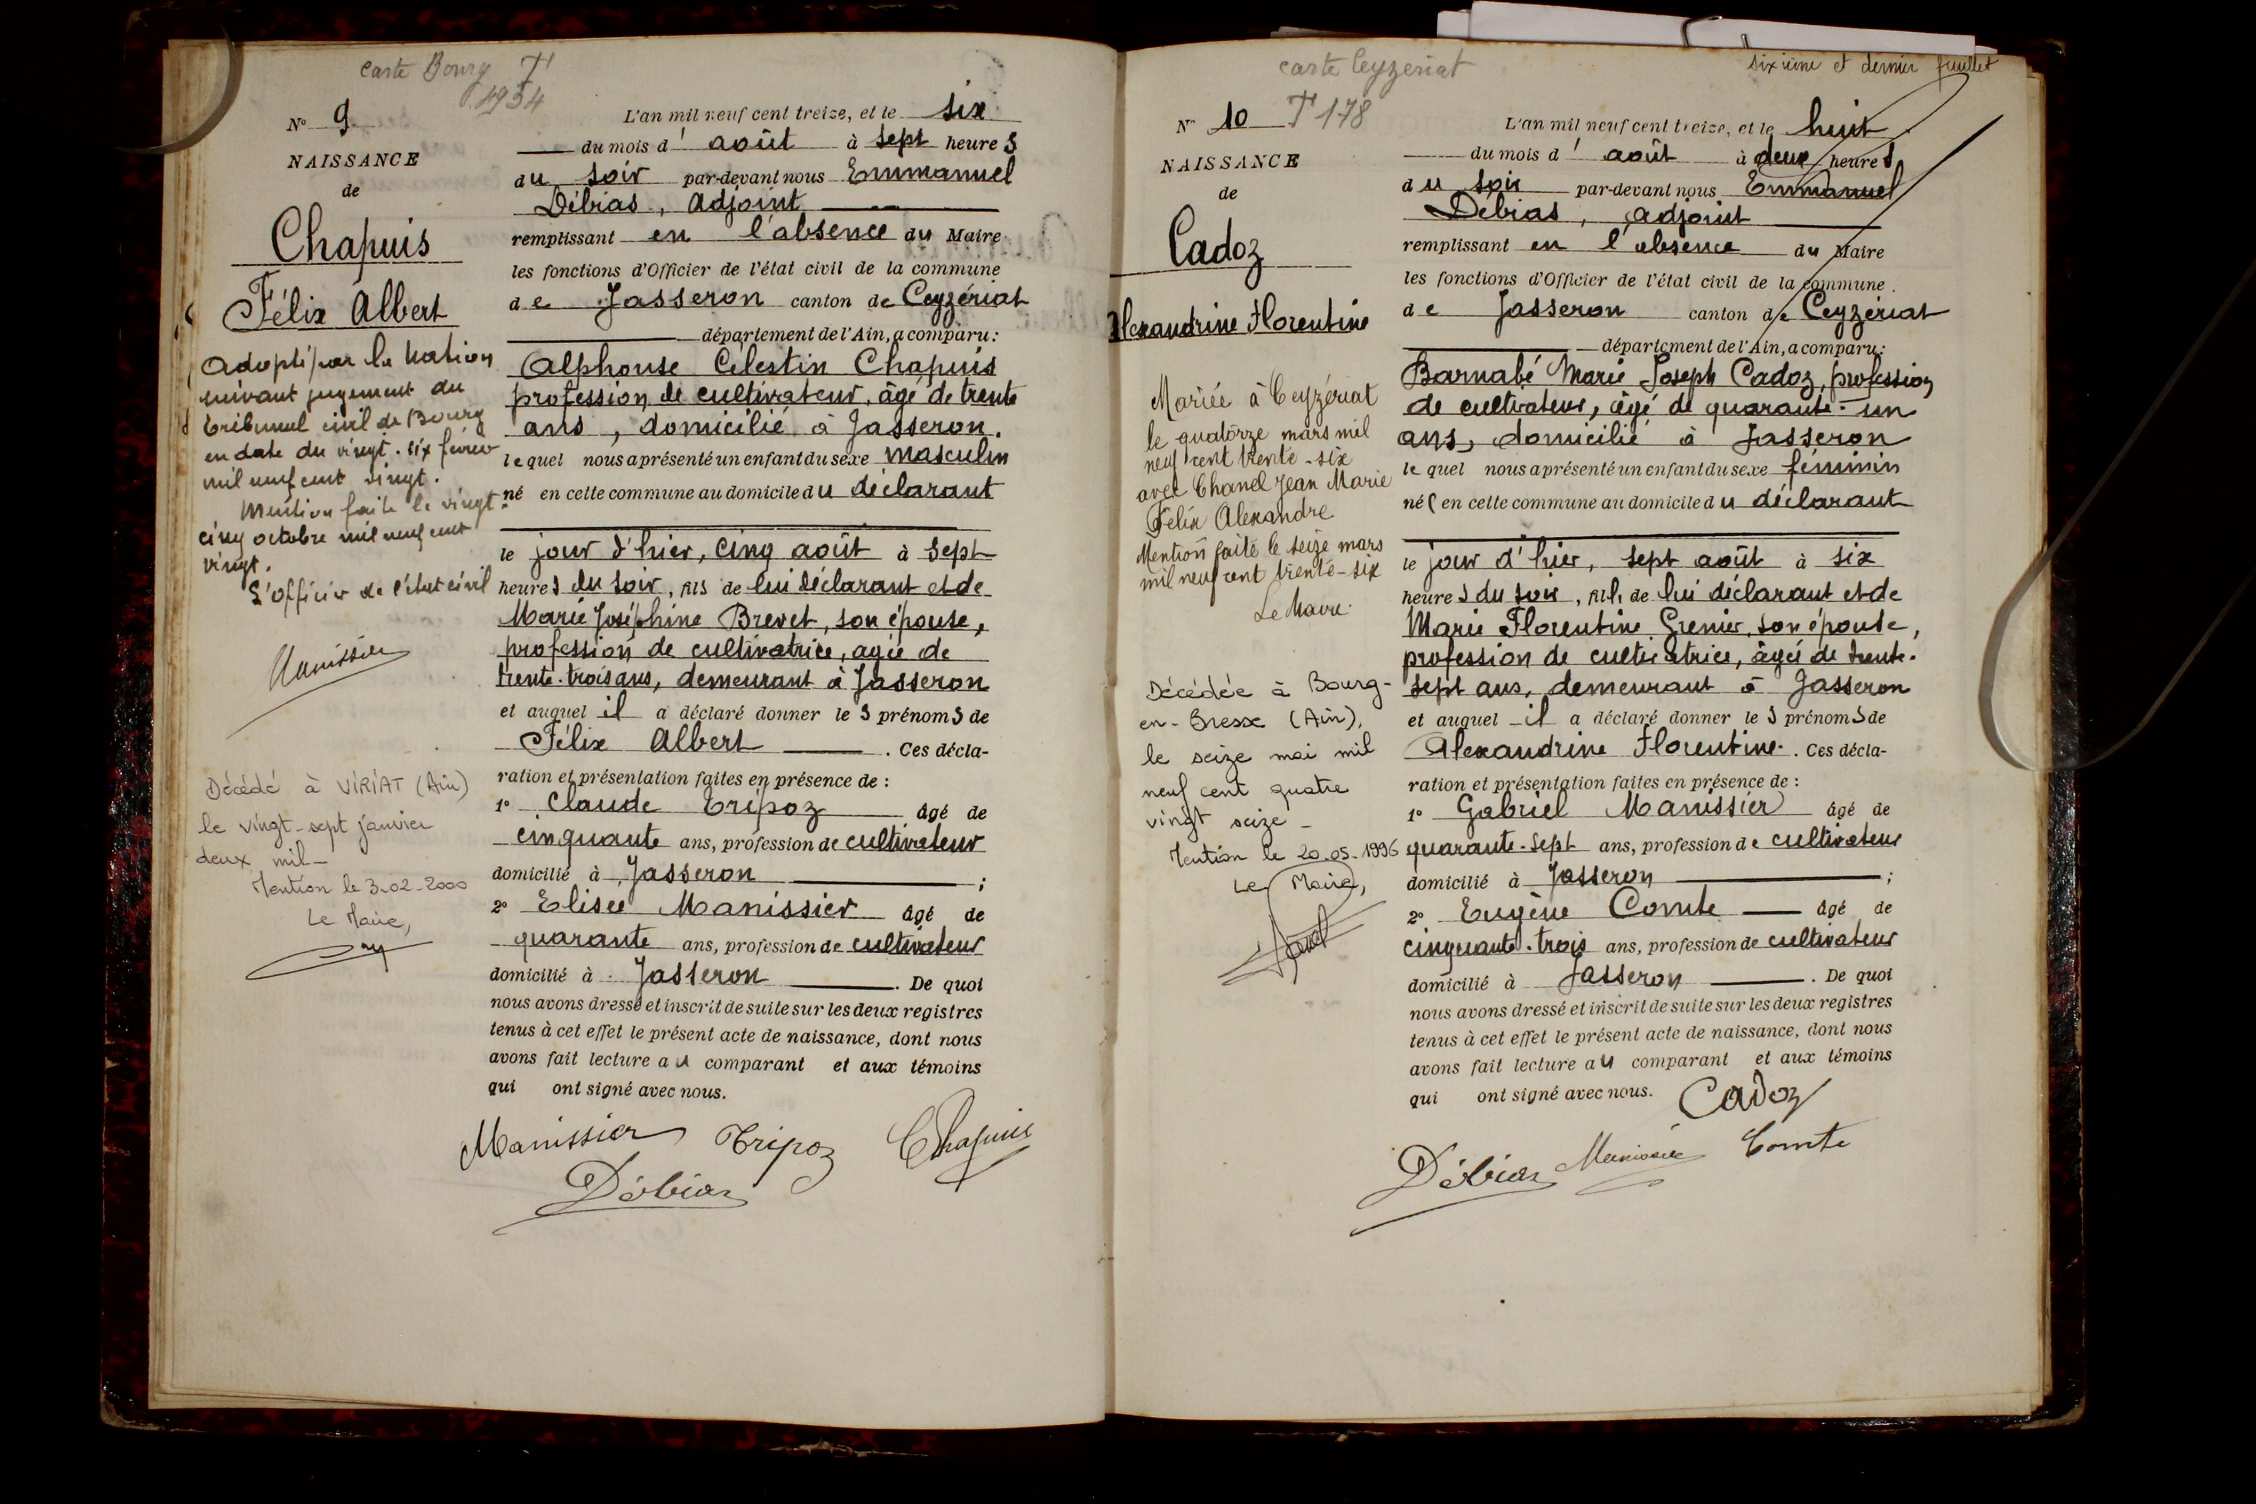 Carte Bourg T
1934
N° 9
NAISSANCE
de
Chapuis
Félix Albert
Adopté par la Nation
suivant jugement du
Tribunal civil de Bourg
en date du vingt-six février
mil neuf cent vingt.
Mention faite le vingt-
cinq octobre mil neuf cent
vingt.
L'officier de l'état civil
Manissier
Décédé à VIRIAT (Ain)
le vingt-sept janvier
deux mil-
Mention le 3-02-2000
Le Maire,
L'an mil neuf cent treize, et le six
du mois d'août à sept heures
du soir par-devant nous Emmanuel
Débias, adjoint
remplissant en l'absence du Maire
les fonctions d'Officier de l'état civil de la commune
de Jasseron canton de Ceyzériat
département de l'Ain, a comparu:
Alphonse Célestin Chapuis
profession de cultivateur, âgé de trente
ans, domicilié à Jasseron.
lequel nous a présenté un enfant du sexe masculin
né en cette commune au domicile du déclarant
le jour d'hier, cinq août à sept
heures du soir, fils de lui déclarant et de
Marie Joséphine Brevet, son épouse,
profession de cultivatrice, agée de
trente-trois ans, demeurant à Jasseron
et auquel il a déclaré donner les prénoms de
Félix Albert . Ces décla-
ration et présentation faites en présence de :
1° Claude Tripoz âgé de
cinquante ans, profession de cultivateur
domicilié à Jasseron ;
2° Elisée Manissier âgé de
quarante ans, profession de cultivateur
domicilié à Jasseron . De quoi
nous avons dressé et inscrit de suite sur les deux registres
tenus à cet effet le présent acte de naissance, dont nous
avons fait lecture au comparant et aux témoins
qui ont signé avec nous.
Manissier Tripoz Chapuis
Débias
carte Ceyzeriat
sixième et dernier feuillet
N° 10 T 178
NAISSANCE
de
Cadoz
Alexandrine Florentine
Mariée à Ceyzériat
le quatorze mars mil
neuf cent trente-six
avec Chanel Jean Marie
Félix Alexandre
Mention faite le seize mars
mil neuf cent trente-six
Le Maire.
Décédée à Bourg-
en-Bresse (Ain),
le seize mai mil
neuf cent quatre
vingt seize -
Mention le 20-05-1996
Le Maire,
L'an mil neuf cent treize, et le huit
du mois d'août à deux heures
du soir par-devant nous Emmanuel
Débias, adjoint
remplissant en l'absence du Maire
les fonctions d'Officier de l'état civil de la commune.
de Jasseron canton de Ceyzériat
département de l'Ain, a comparu:
Barnabé Marie Joseph Cadoz, profession
de cultivateur, âgé de quarante-un
ans, domicilié à Jasseron
lequel nous a présenté un enfant du sexe féminin
née en cette commune au domicile du déclarant
le jour d'hier, sept août à six
heures du soir, fille de lui déclarant et de
Marie Florentine Grenier, son épouse,
profession de cultivatrice, âgée de trente-
sept ans, demeurant à Jasseron
et auquel il a déclaré donner les prénoms de
Alexandrine Florentine. . Ces décla-
ration et présentation faites en présence de :
1° Gabriel Manissier âgé de
quarante-sept ans, profession de cultivateur
domicilié à Jasseron ;
2° Eugène Comte âgé de
cinquante-trois ans, profession de cultivateur
domicilié à Jasseron . De quoi
nous avons dressé et inscrit de suite sur les deux registres
tenus à cet effet le présent acte de naissance, dont nous
avons fait lecture au comparant et aux témoins
qui ont signé avec nous. Cadoz
Débias Manissier Comte